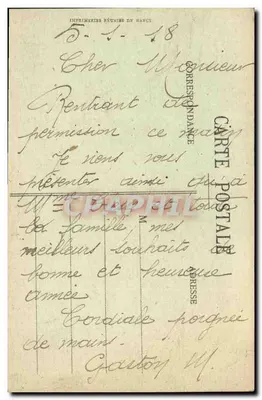 IMPRIMERIES RÉUNIES DE NANCY
5-1-18
Cher Monsieur
Rentrant de
permission ce matin
Je viens vous
présenter ainsi qu'à
Mme et toute
la famille, mes
meilleurs souhaits de
bonne et heureuse
année
Cordiale poignée
de main.
Gaston M.
CORRESPONDANCE
CARTE POSTALE
ADRESSE